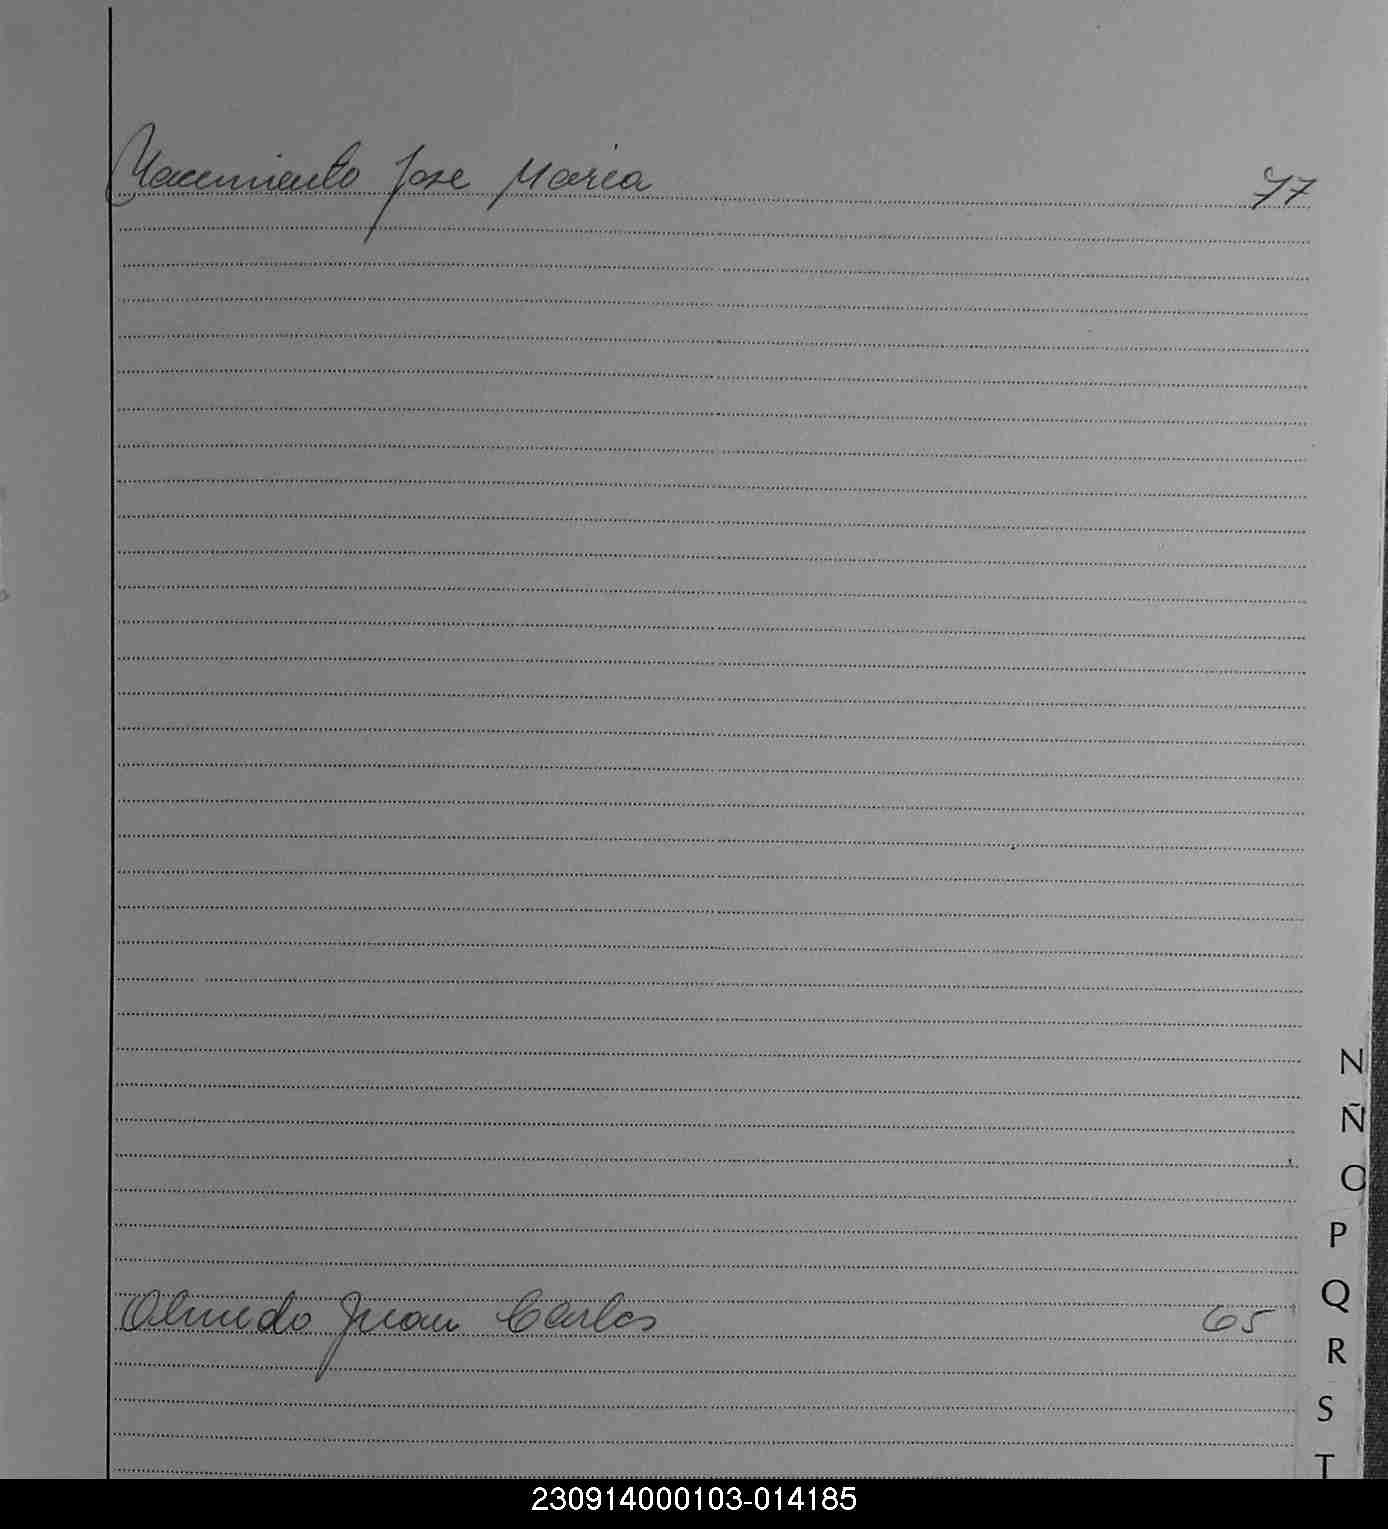 Nacimiento Jose Maria 77
N
Ñ
O
Olmedo Juan Carlos 65
P
Q
R
S
T
230914000103-014185